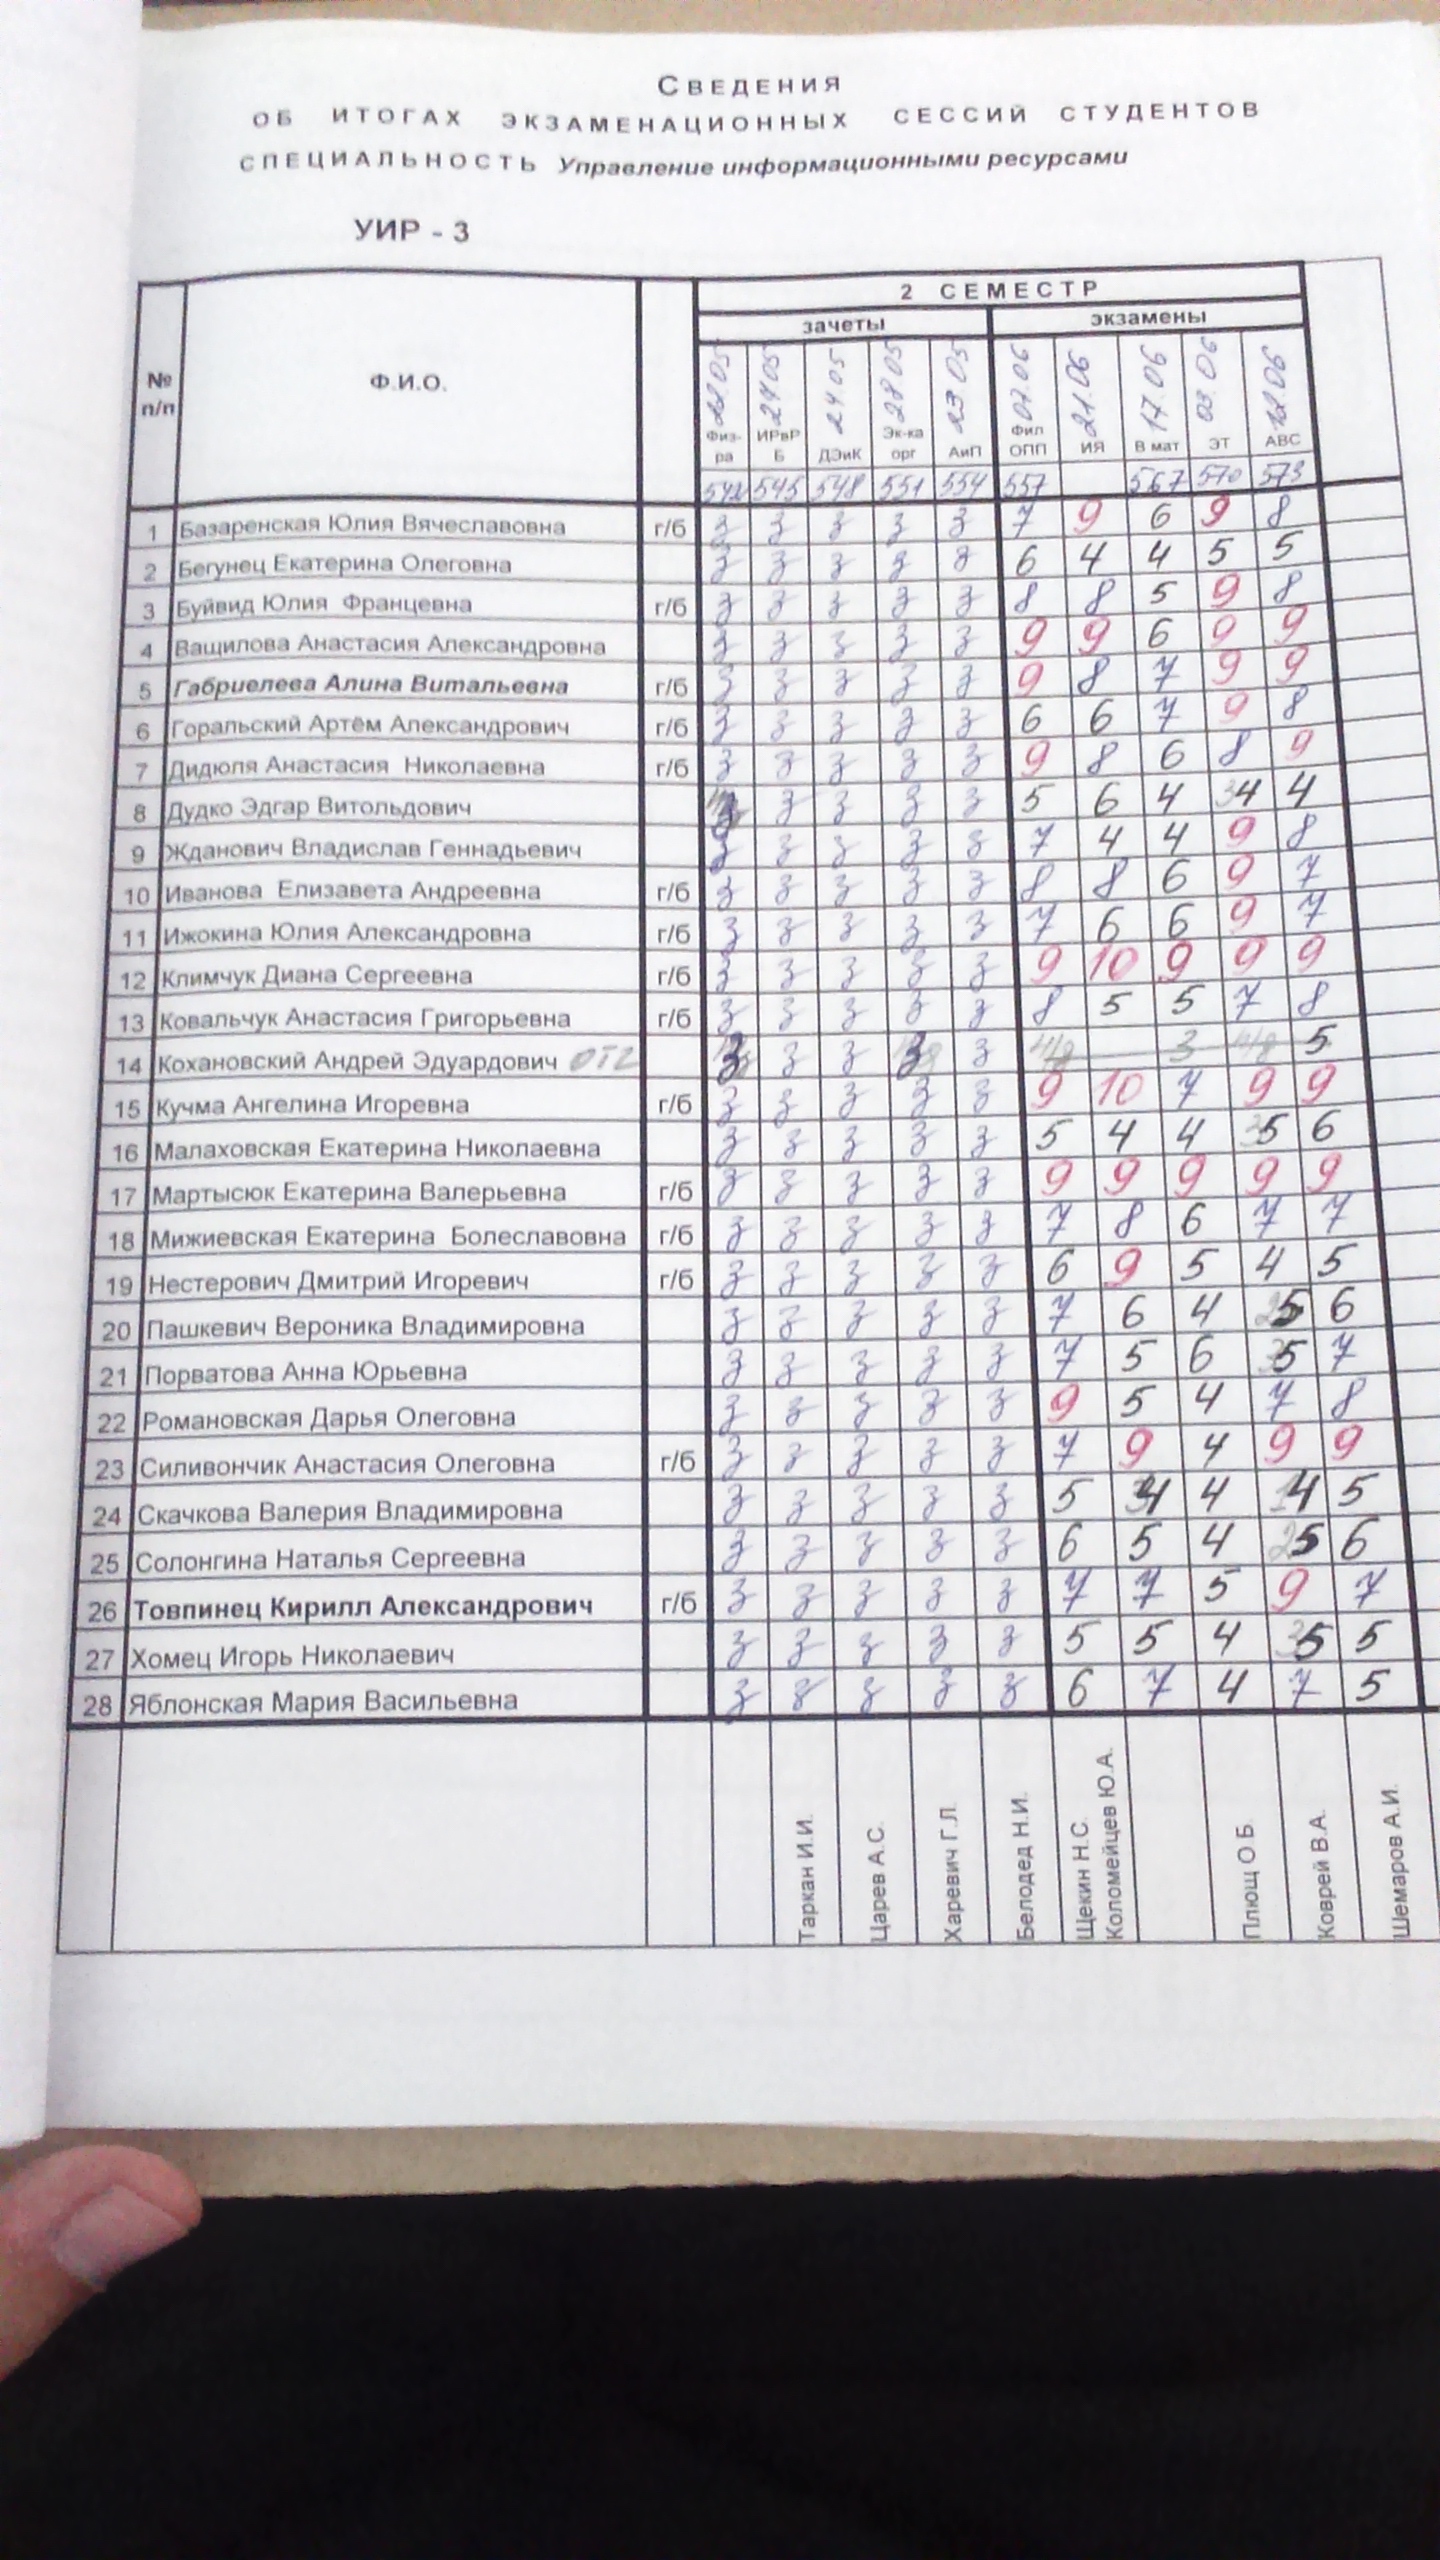 СВЕДЕНИЯ
ОБ ИТОГАХ ЭКЗАМЕНАЦИОННЫХ СЕССИЙ СТУДЕНТОВ
СПЕЦИАЛЬНОСТЬ Управление информационными ресурсами
УИР - 3
2 СЕМЕСТР
зачеты экзамены
№ п/п Ф.И.О.
22.05 24.05 24.05 28.05 23.05 07.06 21.06 17.06 03.06 12.06
Физ-ра ИРвРБ ДЭиК Эк-ка орг АиП Фил ОПП ИЯ В мат ЭТ АВС
542 545 548 551 554 557 567 570 573
1 Базаренская Юлия Вячеславовна г/б з з з з з 7 9 6 9 8
2 Бегунец Екатерина Олеговна з з з з з 6 4 4 5 5
3 Буйвид Юлия Францевна г/б з з з з з 8 8 5 9 8
4 Ващилова Анастасия Александровна з з з з з 9 9 6 9 9
5 Габриелева Алина Витальевна г/б з з з з з 9 8 7 9 9
6 Горальский Артём Александрович г/б з з з з з 6 6 7 9 8
7 Дидюля Анастасия Николаевна г/б з з з з з 9 8 6 8 9
8 Дудко Эдгар Витольдович з з з з з 5 6 4 3 4 4
9 Жданович Владислав Геннадьевич з з з з з 7 4 4 9 8
10 Иванова Елизавета Андреевна г/б з з з з з 8 8 6 9 7
11 Ижокина Юлия Александровна г/б з з з з з 7 6 6 9 7
12 Климчук Диана Сергеевна г/б з з з з з 9 10 9 9 9
13 Ковальчук Анастасия Григорьевна г/б з з з з з 8 5 5 7 8
14 Кохановский Андрей Эдуардович з з з з з н/я 3 н/я 5
15 Кучма Ангелина Игоревна г/б з з з з з 9 10 7 9 9
16 Малаховская Екатерина Николаевна з з з з з 5 4 4 5 6
17 Мартысюк Екатерина Валерьевна г/б з з з з з 9 9 9 9 9
18 Мижиевская Екатерина Болеславовна г/б з з з з з 7 8 6 7 7
19 Нестерович Дмитрий Игоревич г/б з з з з з 6 9 5 4 5
20 Пашкевич Вероника Владимировна з з з з з 7 6 4 5 6
21 Порватова Анна Юрьевна з з з з з 7 5 6 5 7
22 Романовская Дарья Олеговна з з з з з 9 5 4 7 8
23 Силивончик Анастасия Олеговна г/б з з з з з 7 9 4 9 9
24 Скачкова Валерия Владимировна з з з з з 5 4 4 4 5
25 Солонгина Наталья Сергеевна з з з з з 6 5 4 2 5 6
26 Товпинец Кирилл Александрович г/б з з з з з 7 7 5 9 7
27 Хомец Игорь Николаевич з з з з з 5 5 4 3 5 5
28 Яблонская Мария Васильевна з з з з з 6 7 4 7 5
Таркан И.И.
Царев А.С.
Харевич Г.Л.
Белодед Н.И.
Щекин Н.С.
Коломейцев Ю.А.
Плющ О Б.
Коврей В.А.
Шемаров А.И.